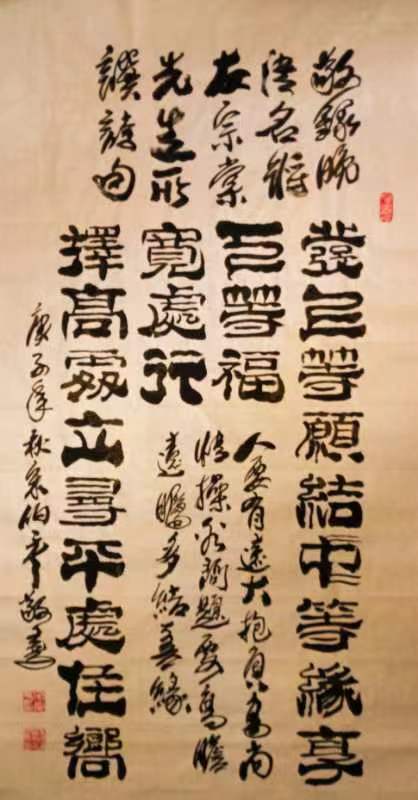 敬録晚
清名將
左宗棠
先生所
譔詩句
發上等願結中等緣享
下等福
擇高處立尋平處住嚮
寬處行
人要有遠大抱負高尚
情操看問題要高瞻
遠矚多結善緣
庚子年秋宋伯平敬書